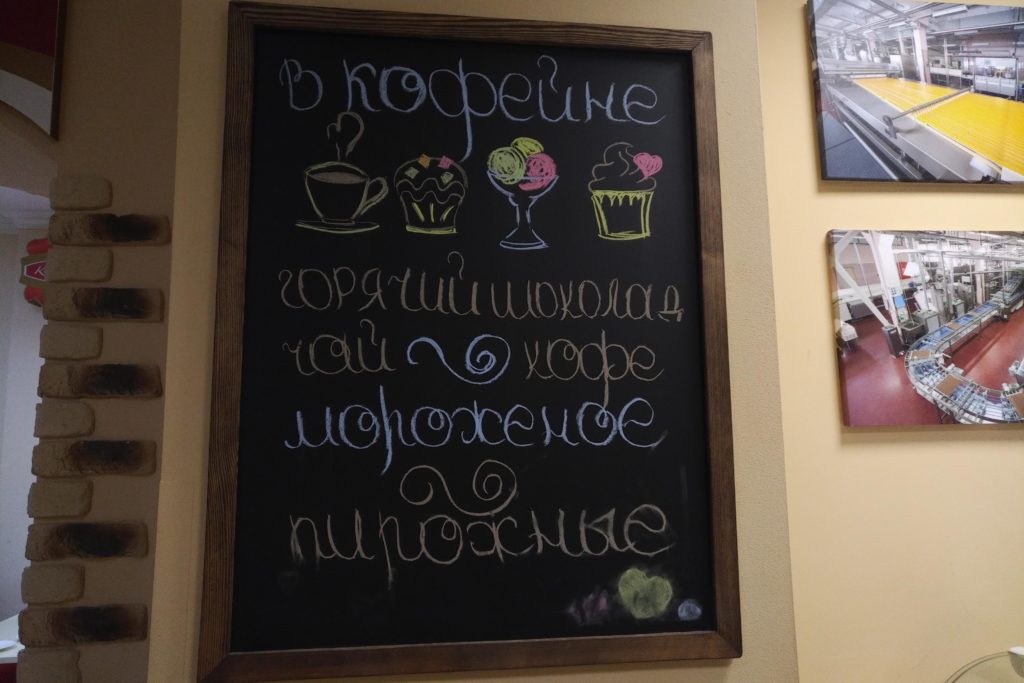 в кофейне
горячий шоколад
чай кофе
мороженое
пирожные